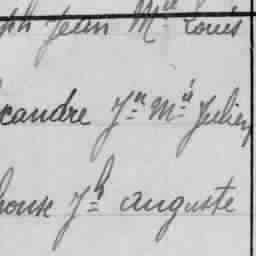 ph Jean Mie Louis
xandre Jn Mie Julien
honse Jh auguste